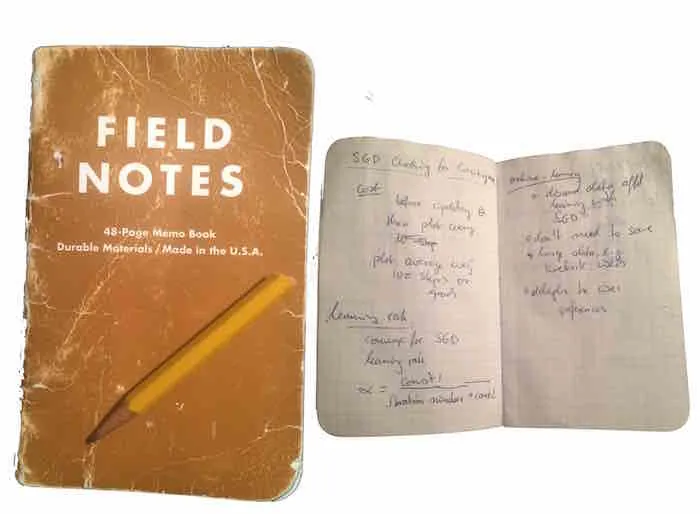 FIELD
NOTES
48-Page Memo Book
Durable Materials / Made in the U.S.A.
SGD Checking for
Cost
before updating θ
then plot every
plot average every
steps or
Learning rate
converge for SGD
learning rate
α = const 1
iteration number + const 2
online learning
discard data after
learning with
SGD
don't need to save
data, e.g.
website users
adapts to user
preferences